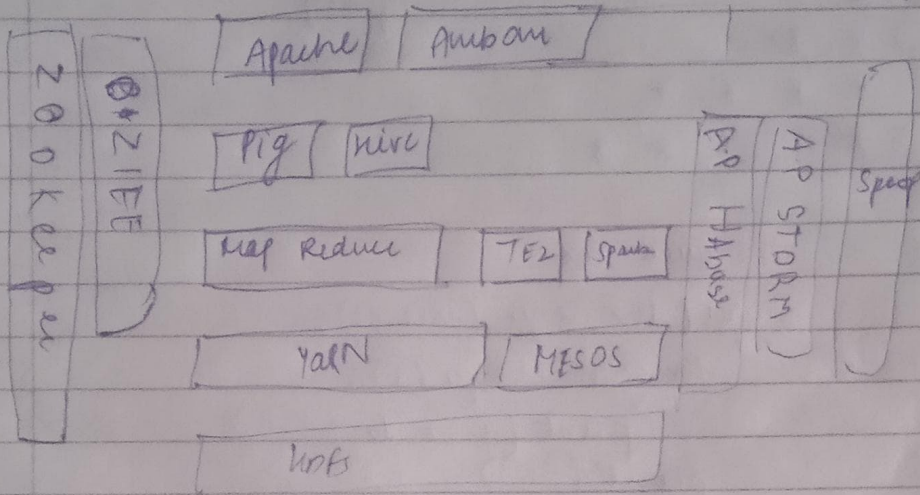 Zookeeper
OOZIEE
Apache Ambari
Pig Hive
Map Reduce TEZ Spark
YaRN MESOS
HDFS
AP HAbase
AP STORM